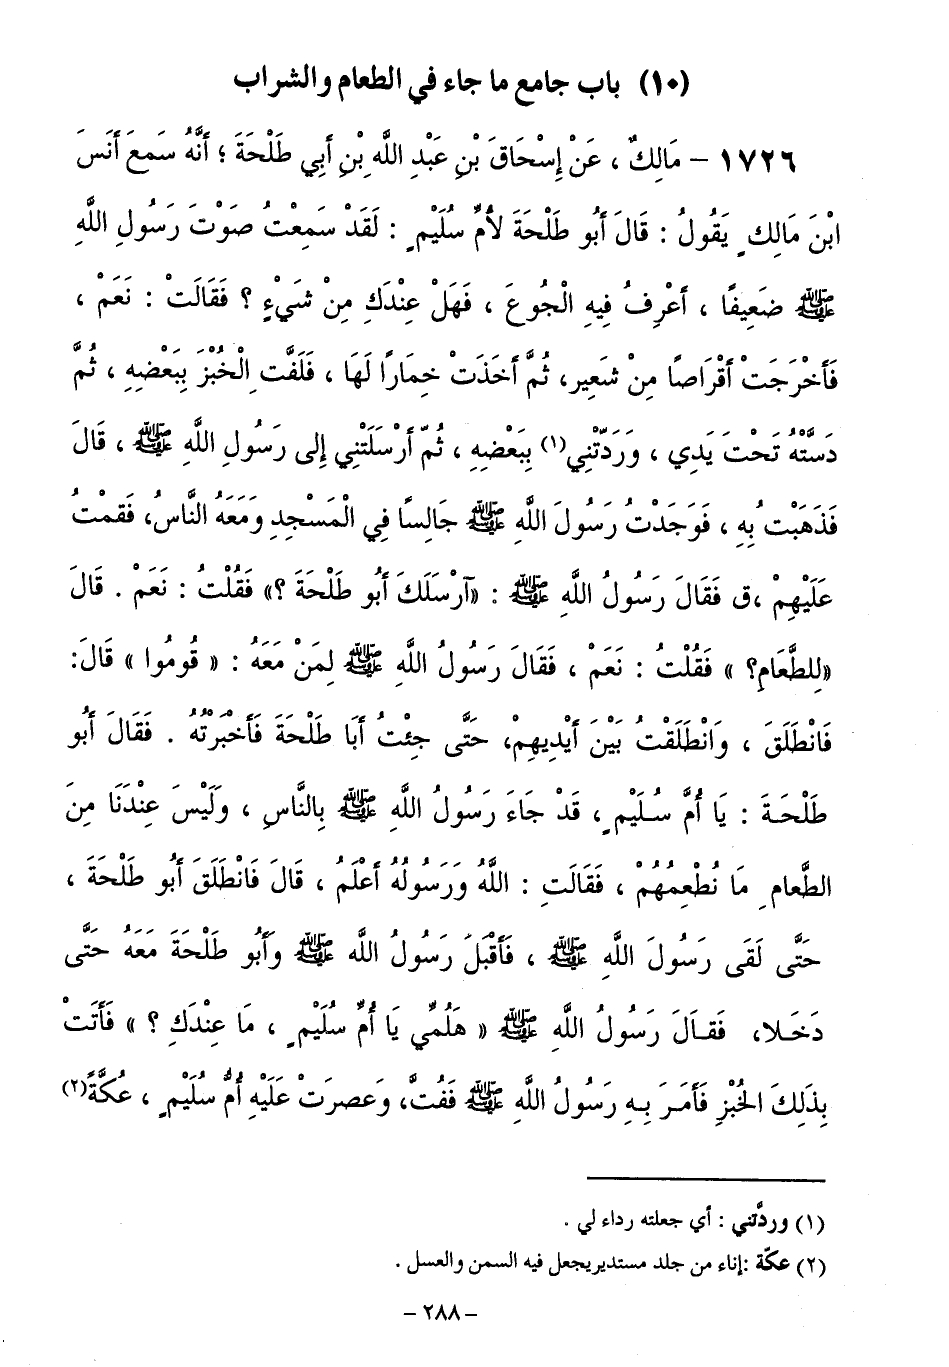 (١٠) باب جامع ما جاء في الطعام والشراب
١٧٢٦ - مَالِكٌ ، عَنْ إِسْحَاقَ بْنِ عَبْدِ اللَّهِ بْنِ أَبِي طَلْحَةَ ؛ أَنَّهُ سَمِعَ أَنَسَ
ابْنَ مَالِكٍ يَقُولُ : قَالَ أَبُو طَلْحَةَ لأُمِّ سُلَيْمٍ : لَقَدْ سَمِعْتُ صَوْتَ رَسُولِ اللَّهِ
ﷺ ضَعِيفًا ، أَعْرِفُ فِيهِ الْجُوعَ ، فَهَلْ عِنْدَكِ مِنْ شَيْءٍ ؟ فَقَالَتْ : نَعَمْ ،
فَأَخْرَجَتْ أَقْرَاصًا مِنْ شَعِيرٍ، ثُمَّ أَخَذَتْ خِمَارًا لَهَا ، فَلَفَّتِ الْخُبْزَ بِبَعْضِهِ ، ثُمَّ
دَسَّتْهُ تَحْتَ يَدِي ، وَرَدَّتْنِي(١) بِبَعْضِهِ ، ثُمَّ أَرْسَلَتْنِي إِلى رَسُولِ اللَّهِ ﷺ ، قَالَ
فَذَهَبْتُ بِهِ ، فَوَجَدْتُ رَسُولَ اللَّهِ ﷺ جَالِسًا فِي الْمَسْجِدِ وَمَعَهُ النَّاسُ، فَقمْتُ
عَلَيْهِمْ ،ق فَقَالَ رَسُولُ اللَّهِ ﷺ : «آرْسَلَكَ أَبُو طَلْحَةَ ؟» فَقُلْتُ : نَعَمْ . قَالَ
«لِلطَّعَامِ؟ » فَقُلْتُ : نَعَمْ ، فَقَالَ رَسُولُ اللَّهِ ﷺ لِمَنْ مَعَهُ : « قُومُوا » قَالَ:
فَانْطَلَقَ ، وَانْطَلَقْتُ بَيْنَ أَيْدِيهِمْ، حَتَّى جِئْتُ أَبَا طَلْحَةَ فَأَخْبَرْتُهُ . فَقَالَ أَبُو
طَلْحَةَ : يَا أُمَّ سُلَيْمٍ ، قَدْ جَاءَ رَسُولُ اللَّهِ ﷺ بِالنَّاسِ ، وَلَيْسَ عِنْدَنَا مِنَ
الطَّعامِ مَا نُطْعِمُهُمْ ، فَقَالَتِ : اللَّهُ وَرَسُولُهُ أَعْلَمُ ، قَالَ فَانْطَلَقَ أَبُو طَلْحَةَ ،
حَتَّى لَقَى رَسُولَ اللَّهِ ﷺ ، فَأَقْبَلَ رَسُولُ اللَّه ﷺ وَأَبُو طَلْحَةَ مَعَهُ حَتَّى
دَخَلا، فَقَالَ رَسُولُ اللَّهِ ﷺ « هَلُمِّي يَا أُمَّ سُلَيْمٍ ، مَا عِنْدَكِ ؟ » فَأَتَتْ
بِذَلِكَ الخُبْزِ فَأَمَرَ بِهِ رَسُولُ اللَّهِ ﷺ فَفُتَّ، وَعَصرَتْ عَلَيْهِ أُمُّ سُلَيْمٍ ، عُكَّةً(٢)
(١) وردَّتني : أي جعلته رداء لي .
(٢) عكّة :إناء من جلد مستديريجعل فيه السمن والعسل .
- ٢٨٨ -